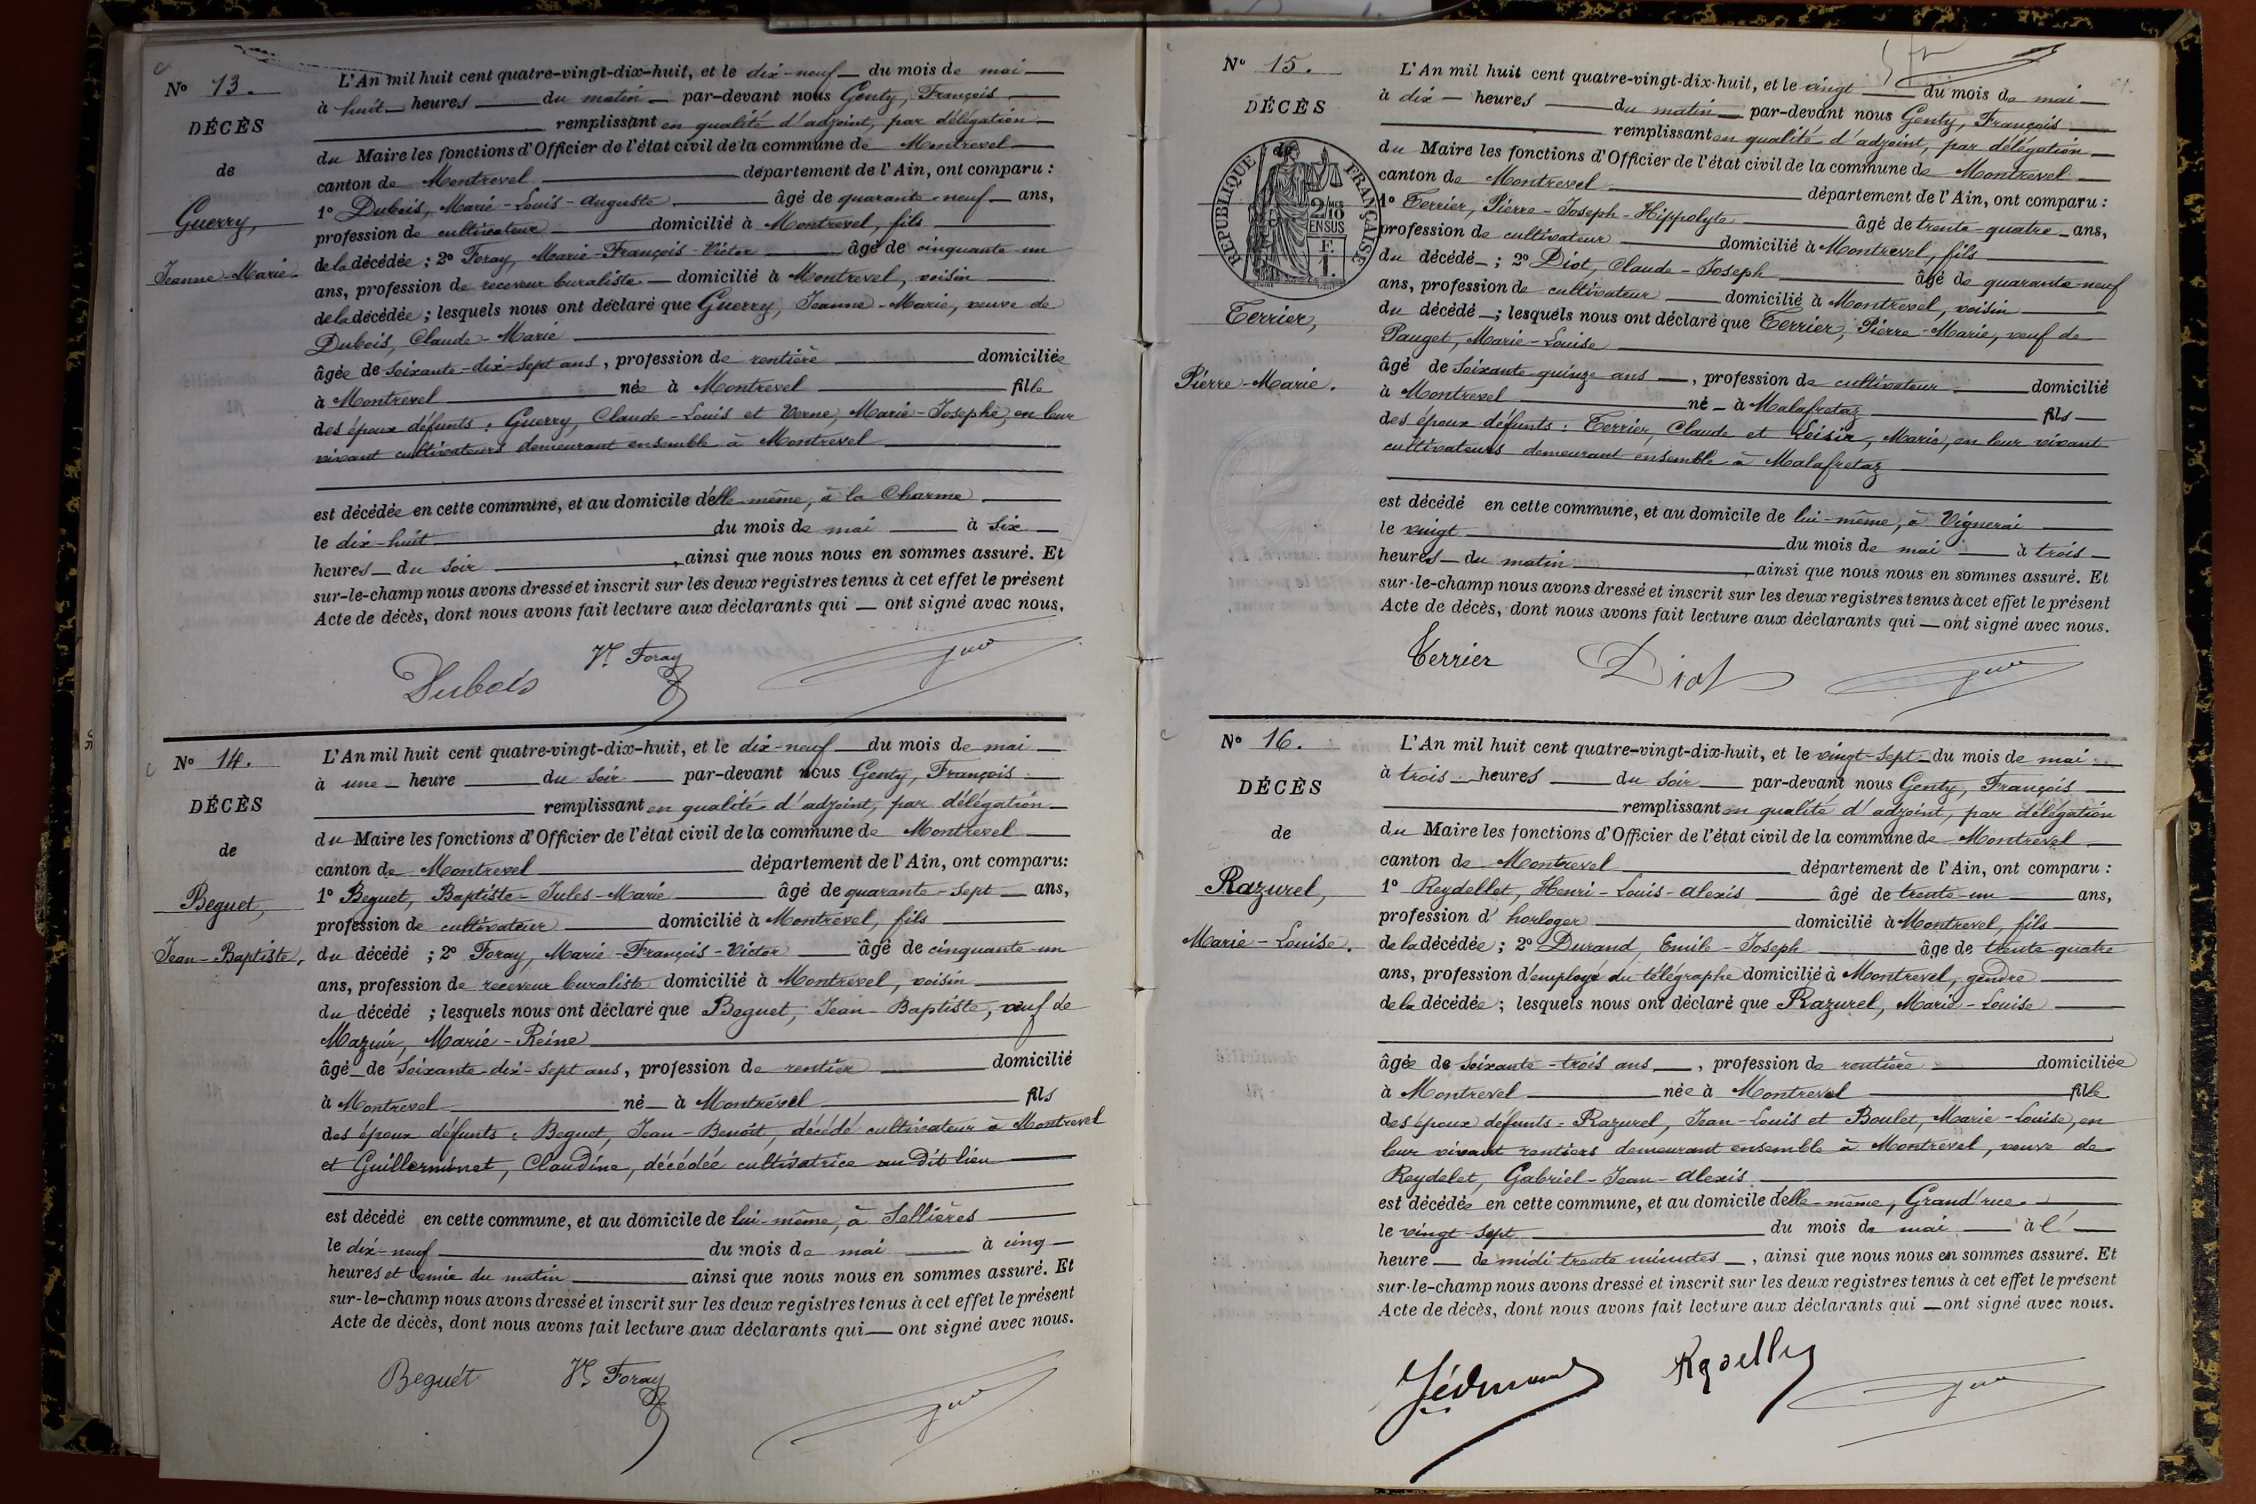 Nº 13.
DÉCÈS
de
Guerry,
Jeanne-Marie
L'An mil huit cent quatre-vingt-dix-huit, et le dix-neuf du mois de mai
à huit heures du matin par-devant nous Genty, François
remplissant en qualité d'adjoint, par délégation
du Maire les fonctions d'Officier de l'état civil de la commune de Montrevel
canton de Montrevel département de l'Ain, ont comparu :
1º Dubois, Marie-Louis-Auguste âgé de quarante-neuf ans,
profession de cultivateur domicilié à Montrevel, fils
de la décédée ; 2º Foray, Marie-François-Victor âgé de cinquante-un
ans, profession de receveur buraliste domicilié à Montrevel, voisin
de la décédée ; lesquels nous ont déclaré que Guerry, Jeanne-Marie, veuve de
Dubois, Claude-Marie
âgée de soixante-dix-sept ans, profession de rentière domiciliée
à Montrevel née à Montrevel fille
des époux défunts : Guerry, Claude-Louis et Verne, Marie-Josephe, en leur
vivant cultivateurs demeurant ensemble à Montrevel
est décédée en cette commune, et au domicile d'elle-même, à la Charme
le dix-huit du mois de mai à six
heures du soir, ainsi que nous nous en sommes assuré. Et
sur-le-champ nous avons dressé et inscrit sur les deux registres tenus à cet effet le présent
Acte de décès, dont nous avons fait lecture aux déclarants qui ont signé avec nous.
Dubois Vr Foray
Nº 14.
DÉCÈS
de
Beguet,
Jean-Baptiste,
L'An mil huit cent quatre-vingt-dix-huit, et le dix-neuf du mois de mai
à une heure du soir par-devant nous Genty, François
remplissant en qualité d'adjoint, par délégation
du Maire les fonctions d'Officier de l'état civil de la commune de Montrevel
canton de Montrevel département de l'Ain, ont comparu :
1º Beguet, Baptiste-Jules-Marie âgé de quarante-sept ans,
profession de cultivateur domicilié à Montrevel, fils
du décédé ; 2º Foray, Marie-François-Victor âgé de cinquante-un
ans, profession de receveur buraliste domicilié à Montrevel, voisin
du décédé ; lesquels nous ont déclaré que Beguet, Jean-Baptiste, veuf de
Mazuir, Marie-Reine
âgé de soixante-dix-sept ans, profession de rentier domicilié
à Montrevel né à Montrevel fils
des époux défunts : Beguet, Jean-Benoît, décédé cultivateur à Montrevel
et Guillerminet, Claudine, décédée cultivatrice au dit lieu
est décédé en cette commune, et au domicile de lui-même, à Sellières
le dix-neuf du mois de mai à cinq
heures et demie du matin ainsi que nous nous en sommes assuré. Et
sur-le-champ nous avons dressé et inscrit sur les deux registres tenus à cet effet le présent
Acte de décès, dont nous avons fait lecture aux déclarants qui ont signé avec nous.
Beguet Vr Foray
Nº 15.
DÉCÈS
de
RÉPUBLIQUE FRANÇAISE
2/10 EN SUS
F. 1.
Terrier,
Pierre-Marie.
L'An mil huit cent quatre-vingt-dix-huit, et le vingt du mois de mai
à dix heures du matin par-devant nous Genty, François
remplissant en qualité d'adjoint, par délégation
du Maire les fonctions d'Officier de l'état civil de la commune de Montrevel
canton de Montrevel département de l'Ain, ont comparu :
1º Terrier, Pierre-Joseph-Hippolyte âgé de trente-quatre ans,
profession de cultivateur domicilié à Montrevel, fils
du décédé ; 2º Diot, Claude-Joseph âgé de quarante-neuf
ans, profession de cultivateur domicilié à Montrevel, voisin
du décédé ; lesquels nous ont déclaré que Terrier, Pierre-Marie, veuf de
Pauget, Marie-Louise
âgé de soixante quinze ans, profession de cultivateur domicilié
à Montrevel né à Malafretaz fils
des époux défunts : Terrier, Claude et Loisir, Marie, en leur vivant
cultivateurs demeurant ensemble à Malafretaz
est décédé en cette commune, et au domicile de lui-même, à Vignerai
le vingt du mois de mai à trois
heures du matin, ainsi que nous nous en sommes assuré. Et
sur-le-champ nous avons dressé et inscrit sur les deux registres tenus à cet effet le présent
Acte de décès, dont nous avons fait lecture aux déclarants qui ont signé avec nous.
Terrier Diot
Nº 16.
DÉCÈS
de
Razurel,
Marie-Louise.
L'An mil huit cent quatre-vingt-dix-huit, et le vingt-sept du mois de mai
à trois heures du soir par-devant nous Genty, François
remplissant en qualité d'adjoint, par délégation
du Maire les fonctions d'Officier de l'état civil de la commune de Montrevel
canton de Montrevel département de l'Ain, ont comparu :
1º Reydellet, Henri-Louis-Alexis âgé de trente-un ans,
profession d'horloger domicilié à Montrevel, fils
de la décédée ; 2º Durand, Emile-Joseph âgé de trente quatre
ans, profession d'employé du télégraphe domicilié à Montrevel, gendre
de la décédée ; lesquels nous ont déclaré que Razurel, Marie-Louise
âgée de soixante-trois ans, profession de rentière domiciliée
à Montrevel née à Montrevel fille
des époux défunts : Razurel, Jean-Louis et Boulet, Marie-Louise, en
leur vivant rentiers demeurant ensemble à Montrevel, veuve de
Reydelet, Gabriel-Jean-Alexis
est décédée en cette commune, et au domicile d'elle-même, Grand'rue
le vingt-sept du mois de mai à l'
heure de midi trente minutes, ainsi que nous nous en sommes assuré. Et
sur-le-champ nous avons dressé et inscrit sur les deux registres tenus à cet effet le présent
Acte de décès, dont nous avons fait lecture aux déclarants qui ont signé avec nous.